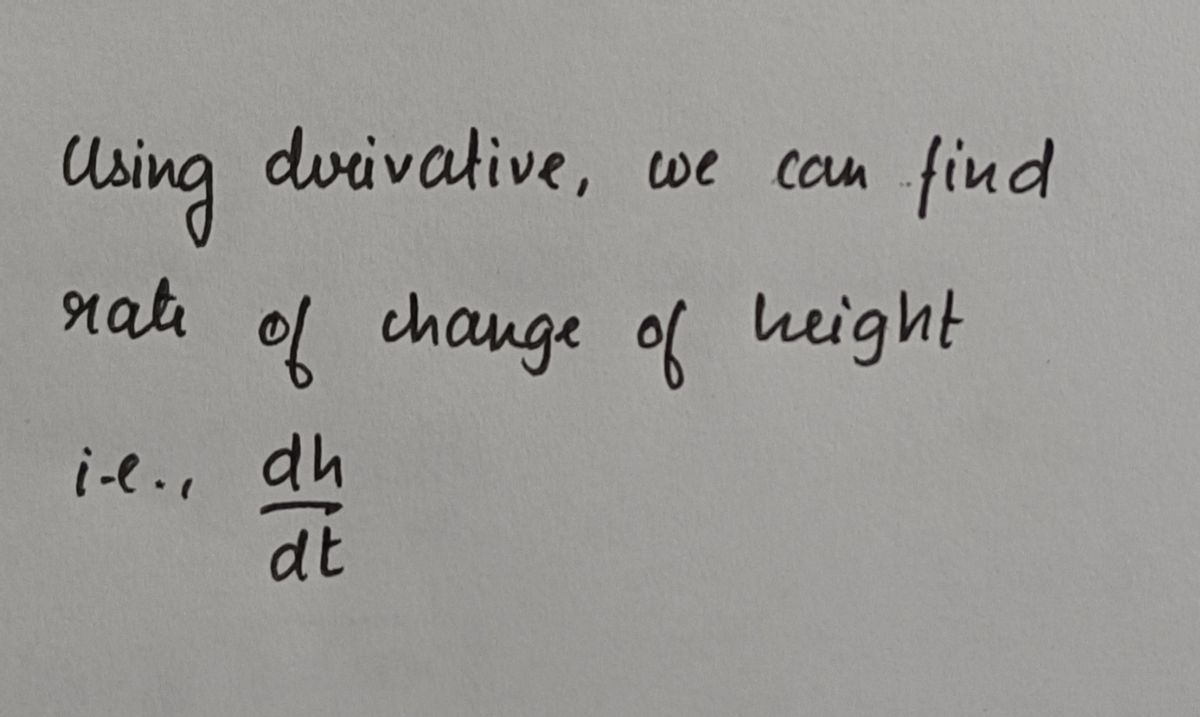 Using derivative, we can find
rate of change of height
i.e., dh/dt